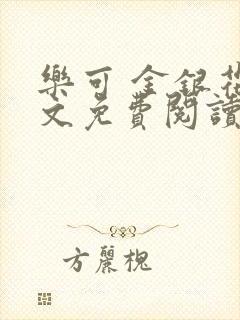 樂可 金銀花
文免費閱讀
方麗槐